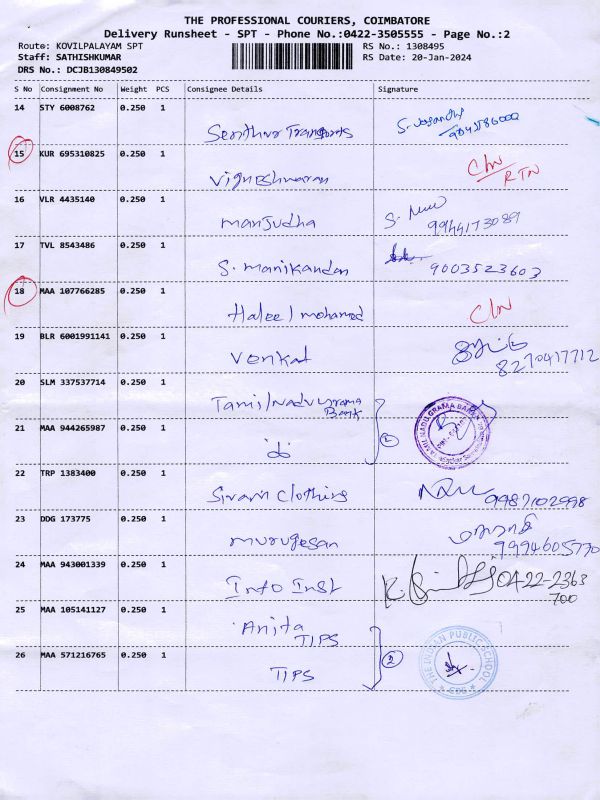 THE PROFESSIONAL COURIERS, COIMBATORE
Delivery Runsheet - SPT - Phone No.:0422-3505555 - Page No.:2
Route: KOVILPALAYAM SPT
RS No.: 1308495
Staff: SATHISHKUMAR
RS Date: 20-Jan-2024
DRS No.: DCJB130849502
S No Consignment No Weight PCS Consignee Details Signature
14 STY 6008762 0.250 1
Senthur Transports
15 KUR 695310825 0.250 1
Vigneshwaran C/N RTN
16 VLR 4435140 0.250 1
manjudha S. 9944173089
17 TVL 8543486 0.250 1
S. manikandan 9003523603
18 MAA 107766285 0.250 1
Haleel mohamed C/N
19 BLR 6001991141 0.250 1
Venkat 8270417712
20 SLM 337537714 0.250 1
Tamil Nadu Grama
Bank
21 MAA 944265987 0.250 1
do 2
TAMIL NADU GRAMA BANK
22 TRP 1383400 0.250 1
Sivam Clothing 9987102998
23 DDG 173775 0.250 1
murugesan 9994605770
24 MAA 943001339 0.250 1
Info Inst 0422-2363
700
25 MAA 105141127 0.250 1
Anita
TIPS
2
26 MAA 571216765 0.250 1
TIPS
THE INDIAN PUBLIC SCHOOL
CBE